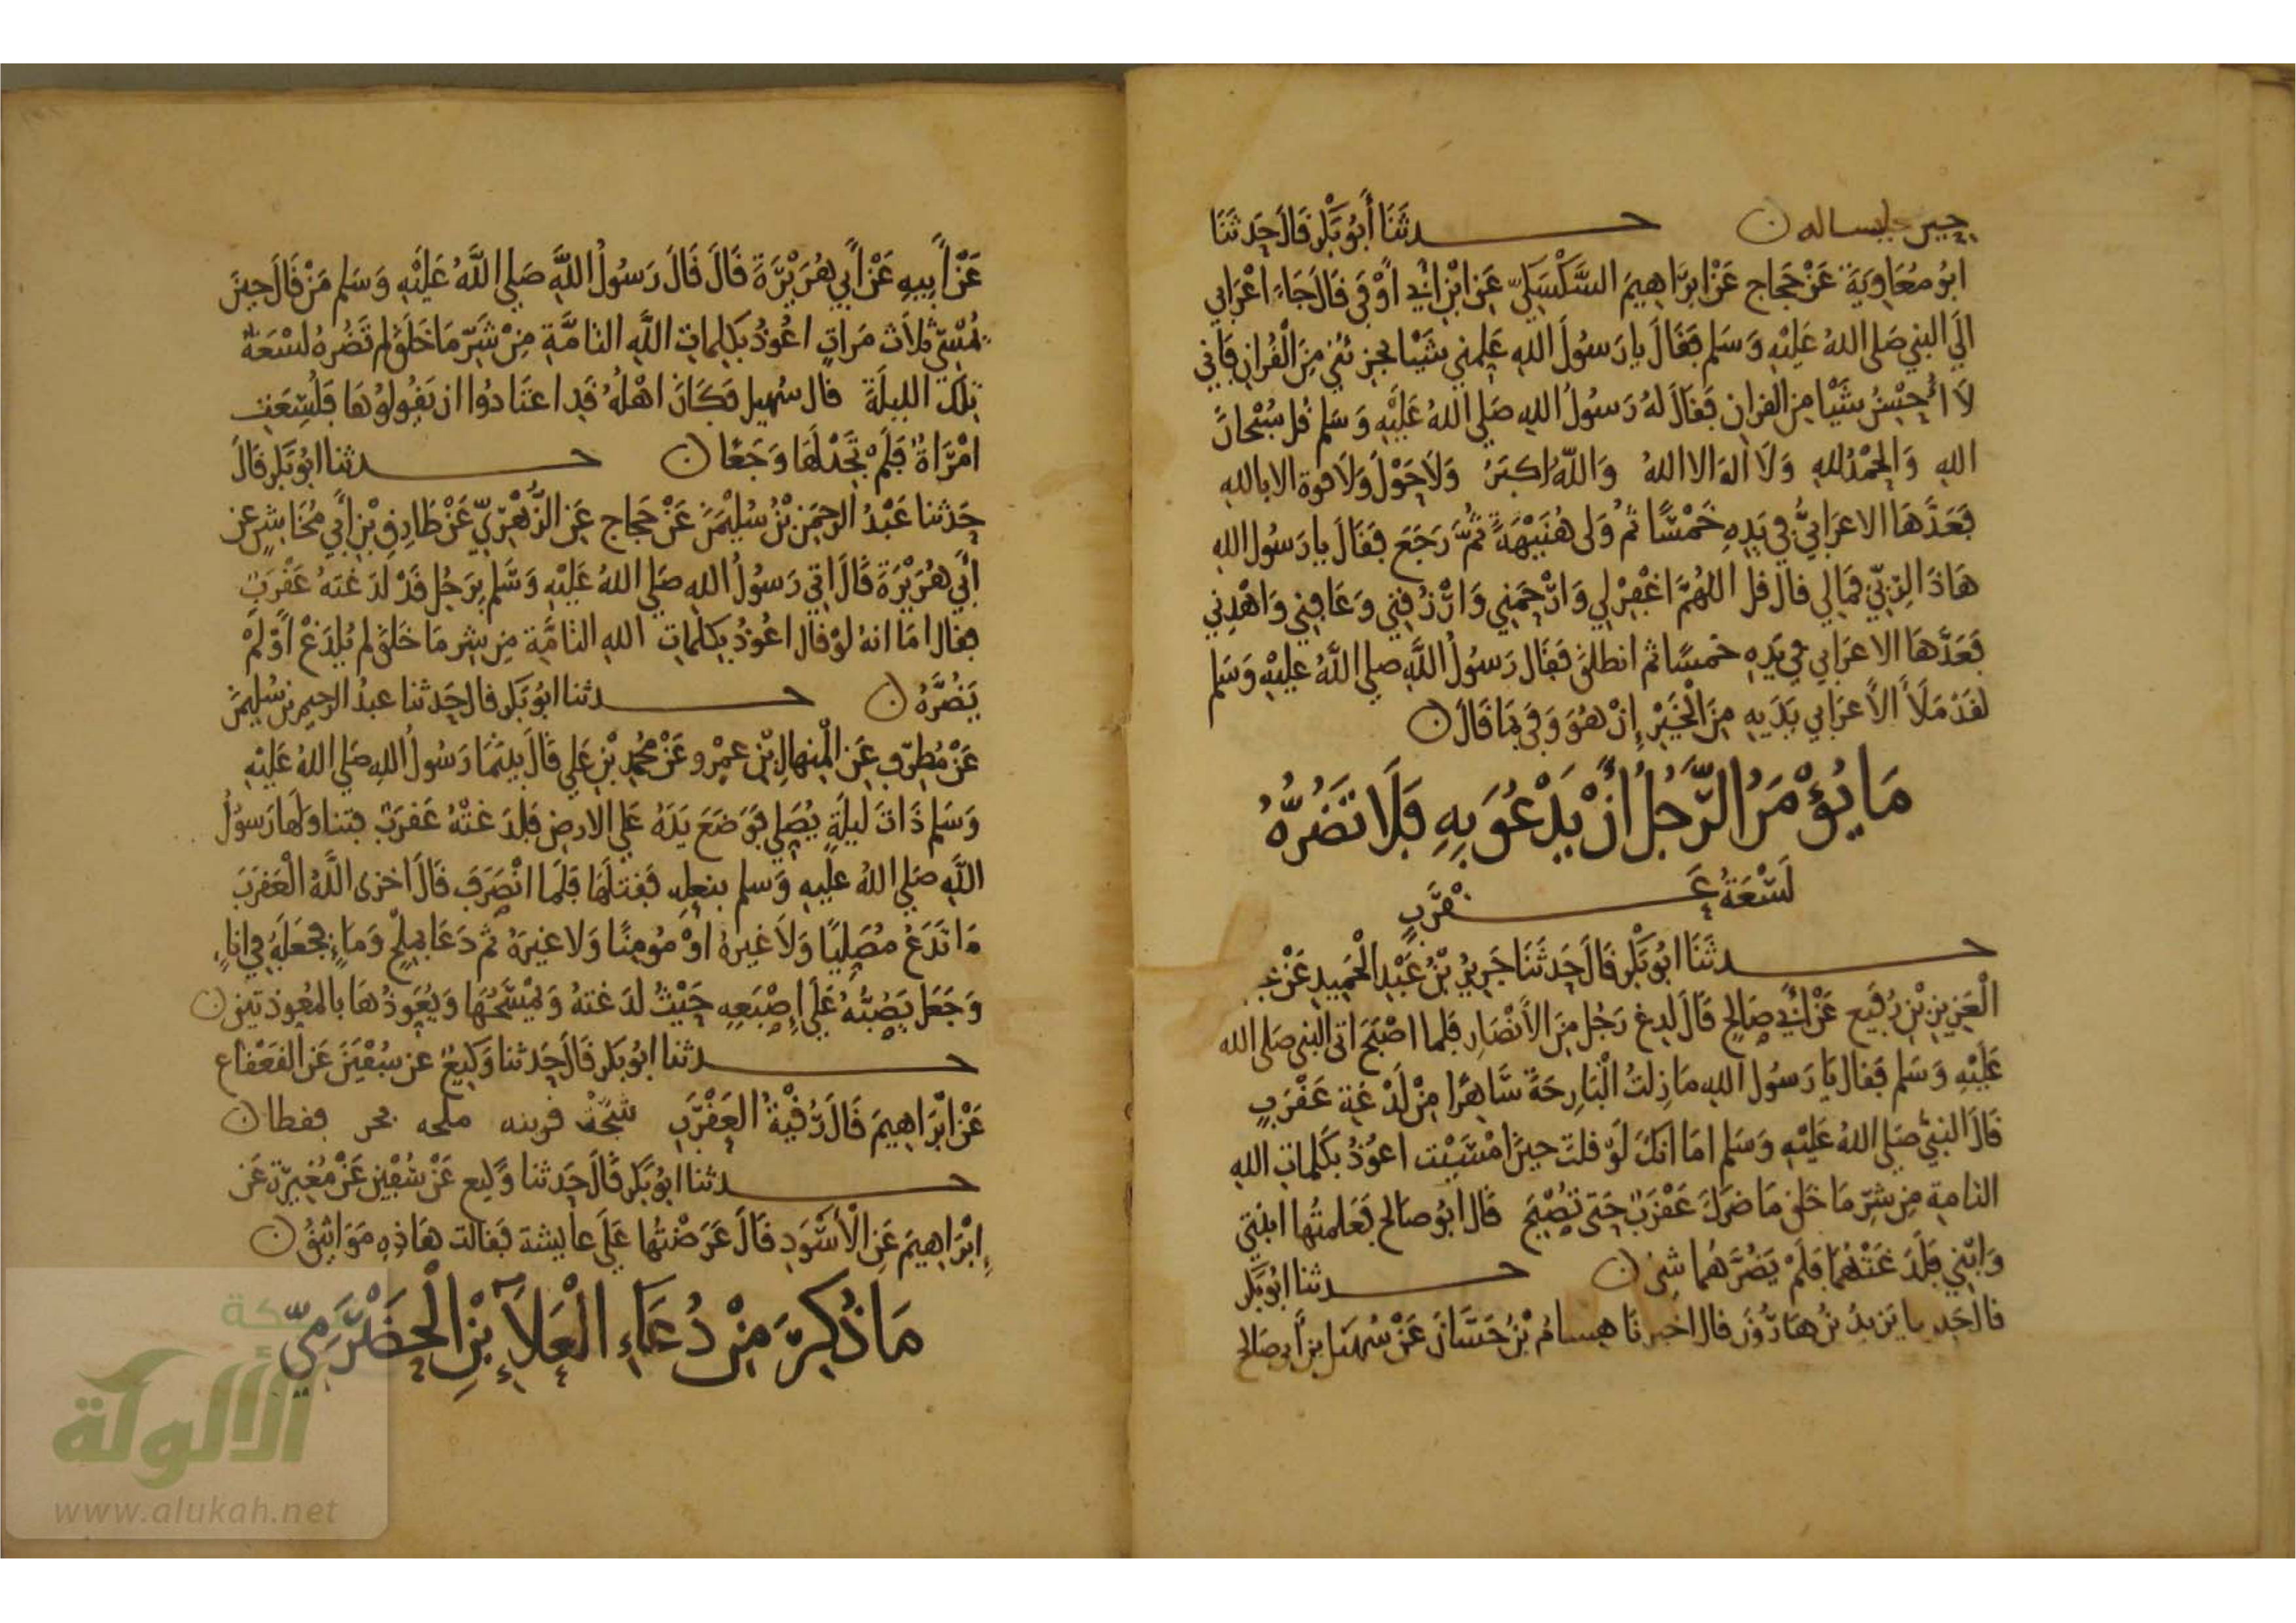 حدثنا أبو بكر قال حدثنا
ابو معاوية عن حجاج عن ابراهيم السكسكي عن ابن أبي أوفى قال جاء اعرابي
الي النبي صلى الله عليه وسلم فقال يا رسول الله علمني شيا يجزئني من القران فاني
لا أحسن شيا من القران فقال له رسول الله صلي الله عليه وسلم قل سبحان
الله والحمد لله ولا اله الا الله والله اكبر ولا حول ولا قوة الا بالله
فعدها الاعرابي في يده خمسا ثم ولى هنيهة ثم رجع فقال يا رسول الله
هاذا لربي فمالي قال قل اللهم اغفر لي وارحمني وارزقني وعافني واهدني
فعدها الاعرابي في يده خمسا ثم انطلق فقال رسول الله صلي الله عليه وسلم
لقد ملأ الأعرابي يديه من الخير إن هو وفى بما قال ن
ما يؤمر الرجل أن يدعو به فلا تضره
لسعة عقرب
حدثنا ابو بكر قال حدثنا جرير بن عبد الحميد عن عبد
العزيز بن رفيع عن أبي صالح قال لدغ رجل من الأنصار فلما اصبح اتى النبي صلى الله
عليه وسلم فقال يا رسول الله ما زلت البارحة ساهرا من لدغة عقرب
قال النبي صلي الله عليه وسلم اما انك لو قلت حين امسيت اعوذ بكلمات الله
التامة من شر ما خلق ما ضرك عقرب حتى تصبح قال ابو صالح فعلمتها ابنتي
وابني فلدغتهما فلم يضرهما شي ن حدثنا ابو بكر
قال حدثنا يزيد بن هارون قال اخبرنا هشام بن حسان عن سهيل بن أبي صالح
عن أبيه عن أبي هريرة قال قال رسول الله صلي الله عليه وسلم من قال حين
يمسي ثلاث مرات اعوذ بكلمات الله التامة من شر ما خلق لم تضره لسعة
تلك الليلة قال سهيل فكان اهله قد اعتادوا ان يقولوها فلسعت
امرأة فلم تجد لها وجعا ن حدثنا ابو بكر قال
حدثنا عبد الرحمن بن سليمن عن حجاج عن الزهري عن طارق بن أبي مخاشن عن
أبي هريرة قال اتي رسول الله صلي الله عليه وسلم برجل قد لدغته عقرب
فقال اما انه لو قال اعوذ بكلمات الله التامة من شر ما خلق لم يلدغ أو لم
يضره ن حدثنا ابو بكر قال حدثنا عبد الرحيم بن سليمن
عن مطرف عن المنهال بن عمرو عن محمد بن علي قال بينما رسول الله صلي الله عليه
وسلم ذات ليلة يصلي فوضع يده علي الارض فلدغته عقرب فتناولها رسول
الله صلي الله عليه وسلم بنعله فقتلها فلما انصرف قال اخزى الله العقرب
ما تدع مصليا ولا غيره او مومنا ولا غيره ثم دعا بملح وماء فجعله في اناء
وجعل يصبه علي اصبعه حيث لدغته ويمسحها ويعوذها بالمعوذتين ن
حدثنا ابو بكر قال حدثنا وكيع عن سفين عن القعقاع
عن ابراهيم قال رقية العقرب شجة قرينه ملحه بحر قفطا ن
حدثنا ابو بكر قال حدثنا وكيع عن سفين عن مغيرة عن
ابراهيم عن الأسود قال عرضتها علي عايشة فقالت هاذه مواثيق ن
ما ذكر من دعاء العلاء بن الحضرمي
الألوكة
www.alukah.net